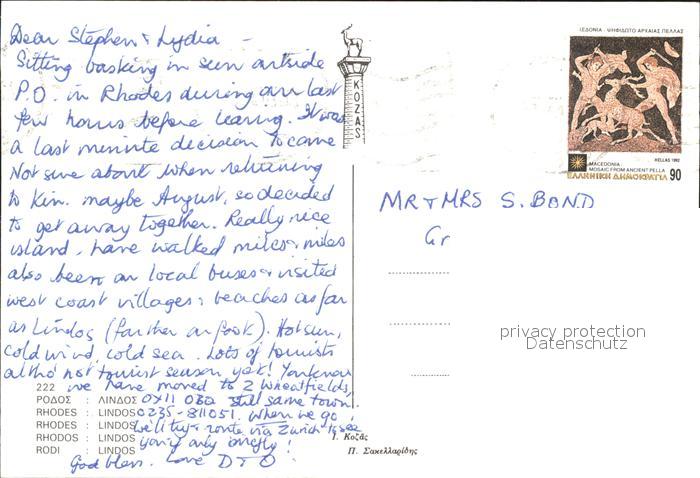 Dear Stephen & Lydia -
Sitting basking in sun outside
P.O. in Rhodes during our last
few hours before leaving. It was
a last minute decision to come
Not sure about when returning
to Kin. maybe August, so decided
to get away together. Really nice
island, have walked miles & miles
also been on local buses & visited
west coast villages & beaches as far
as Lindos (farther on foot). Hot sun,
cold wind, cold sea. Lots of tourists
altho' not tourist season yet!
we have moved to 2 Wheatfields,
OX11 0BQ still same town.
0235-811051. When we go
we'll try & route via Zurich to see
you if only briefly!
God bless. Love D & O
222
ΡΟΔΟΣ : ΛΙΝΔΟΣ
RHODES : LINDOS
RHODES : LINDOS
RHODOS : LINDOS
RODI : LINDOS
KOZAS
Ι. Κοζᾶς
Π. Σακελλαρίδης
ΜΑΚΕΔΟΝΙΑ - ΨΗΦΙΔΩΤΟ ΑΡΧΑΙΑΣ ΠΕΛΛΑΣ
HELLAS 1992
MACEDONIA
MOSAIC FROM ANCIENT PELLA
ΕΛΛΗΝΙΚΗ ΔΗΜΟΚΡΑΤΙΑ 90
MR & MRS S. BOND
Gr
privacy protection
Datenschutz